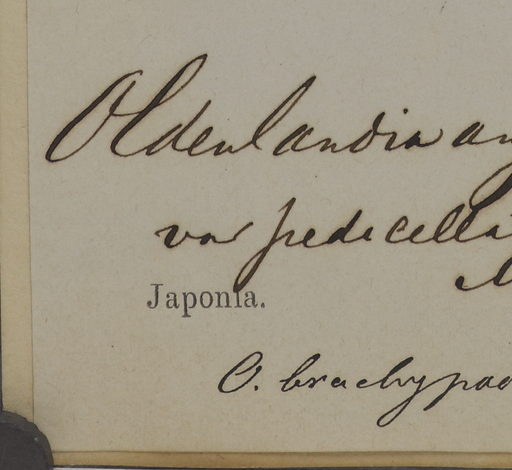 Oldenlandia an
var pedicella
Japonia.
O. brachypod